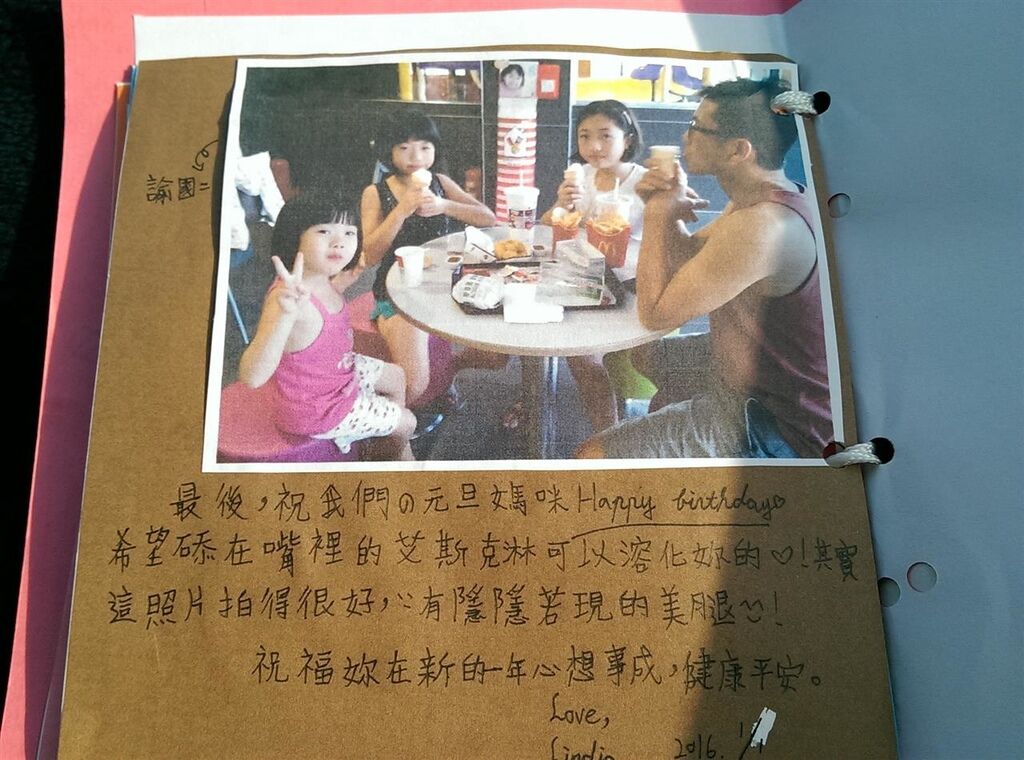 諭圖=
最後,祝我們の元旦媽咪Happy birthday♡
希望硳在嘴裡的艾斯克淋可以溶化妳的♡!其實
這照片拍得很好,有隱隱若現的美腿!
祝福妳在新的一年心想事成,健康平安。
Love,
2016. 1/1